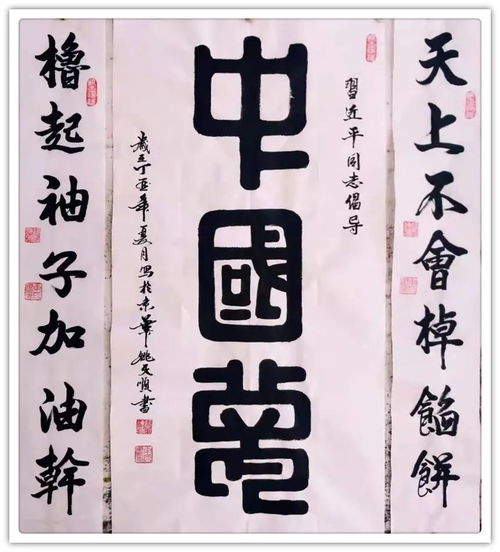 天上不會棹餡餅
習近平同志倡导
中國夢
歲在丁酉年夏月写於京華姚文順書
櫓起袖子加油幹